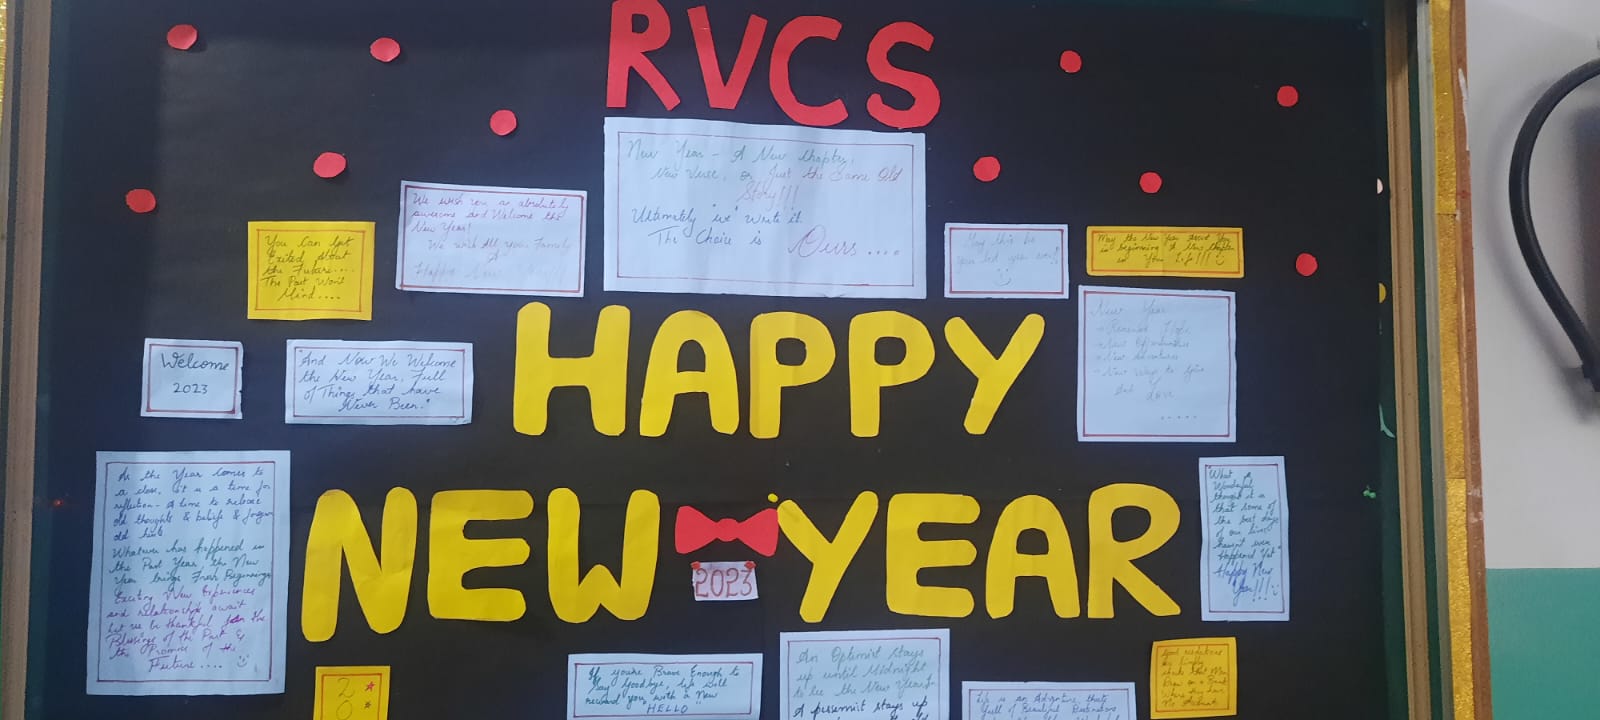 RVCS
New Year - A New Chapter,
New Verse, or Just the Same Old
Story!!!
Ultimately "we" write it.
The Choice is Ours ....
We wish you an absolutely
awesome and Welcome the
New Year!
We wish All your Family
A
Happy New
You Can Get
Exited About
the Future....
The Past Won't
Mind....
May this be
you
May the New Year
is beginning A New Chapter
in Your Life!!!
New Year
- Renewed Hope
- New Opportunities
- New Adventures
- New Ways to Give
and Love
.....
Welcome
2023
"And Now We Welcome
the New Year, Full
of Things that have
Never Been."
HAPPY
NEW YEAR
2023
As the Year Comes to
a close, It is a time for
reflection - A time to release
old thoughts & beliefs & forgive
old hurts
Whatever has happened in
the Past Year, the New
Year brings Fresh Beginnings
Exciting New Experiences
and relationships await
Let us be thankful for the
Blessings of the Past &
the Promise of the
Future ....
"What a
Wonderful
thought it is
that some of
the best days
of our lives
haven't even
Happened Yet"
Happy New
Year!!!
2
0
If you're Brave Enough to
Say Goodbye, life will
reward you with a New
"HELLO"
An Optimist stays
up until Midnight
to see the New Year In
A pessimist stays up
Life is an Adventure that's
full of Beautiful
Good resolutions
Simply
Checks that Men
Draw on a Bank
Where they have
No Account